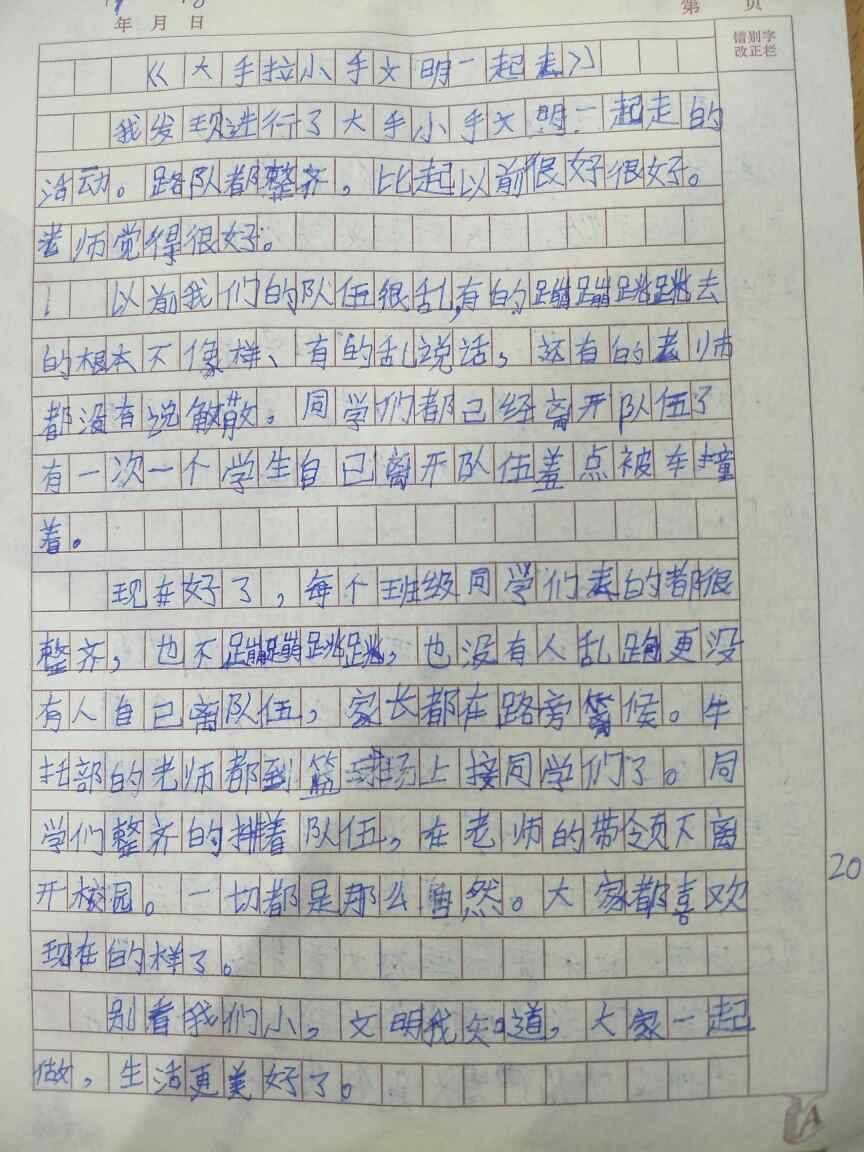 年 月 日
第 页
错别字
改正栏
《大手拉小手文明一起走》
我发现进行了大手小手文明一起走的
活动。路队都整齐。比起以前很好很好。
老师觉得很好。
以前我们的队伍很乱,有的蹦蹦跳跳去
的根本不像样、有的乱说话,还有的老师
都没有说解散。同学们都已经离开队伍了
有一次一个学生自己离开队伍羞点被车撞
着。
现在好了,每个班级同学们走的都很
整齐,也不蹦蹦跳跳,也没有人乱跑更没
有人自己离队伍,家长都在路旁等候。牛
托部的老师都到篮球场上接同学们了。同
学们整齐的排着队伍,在老师的带领下离
开校园。一切都是那么自然。大家都喜欢
现在的样了。
别看我们小,文明我知道,大家一起
做,生活更美好了。
20